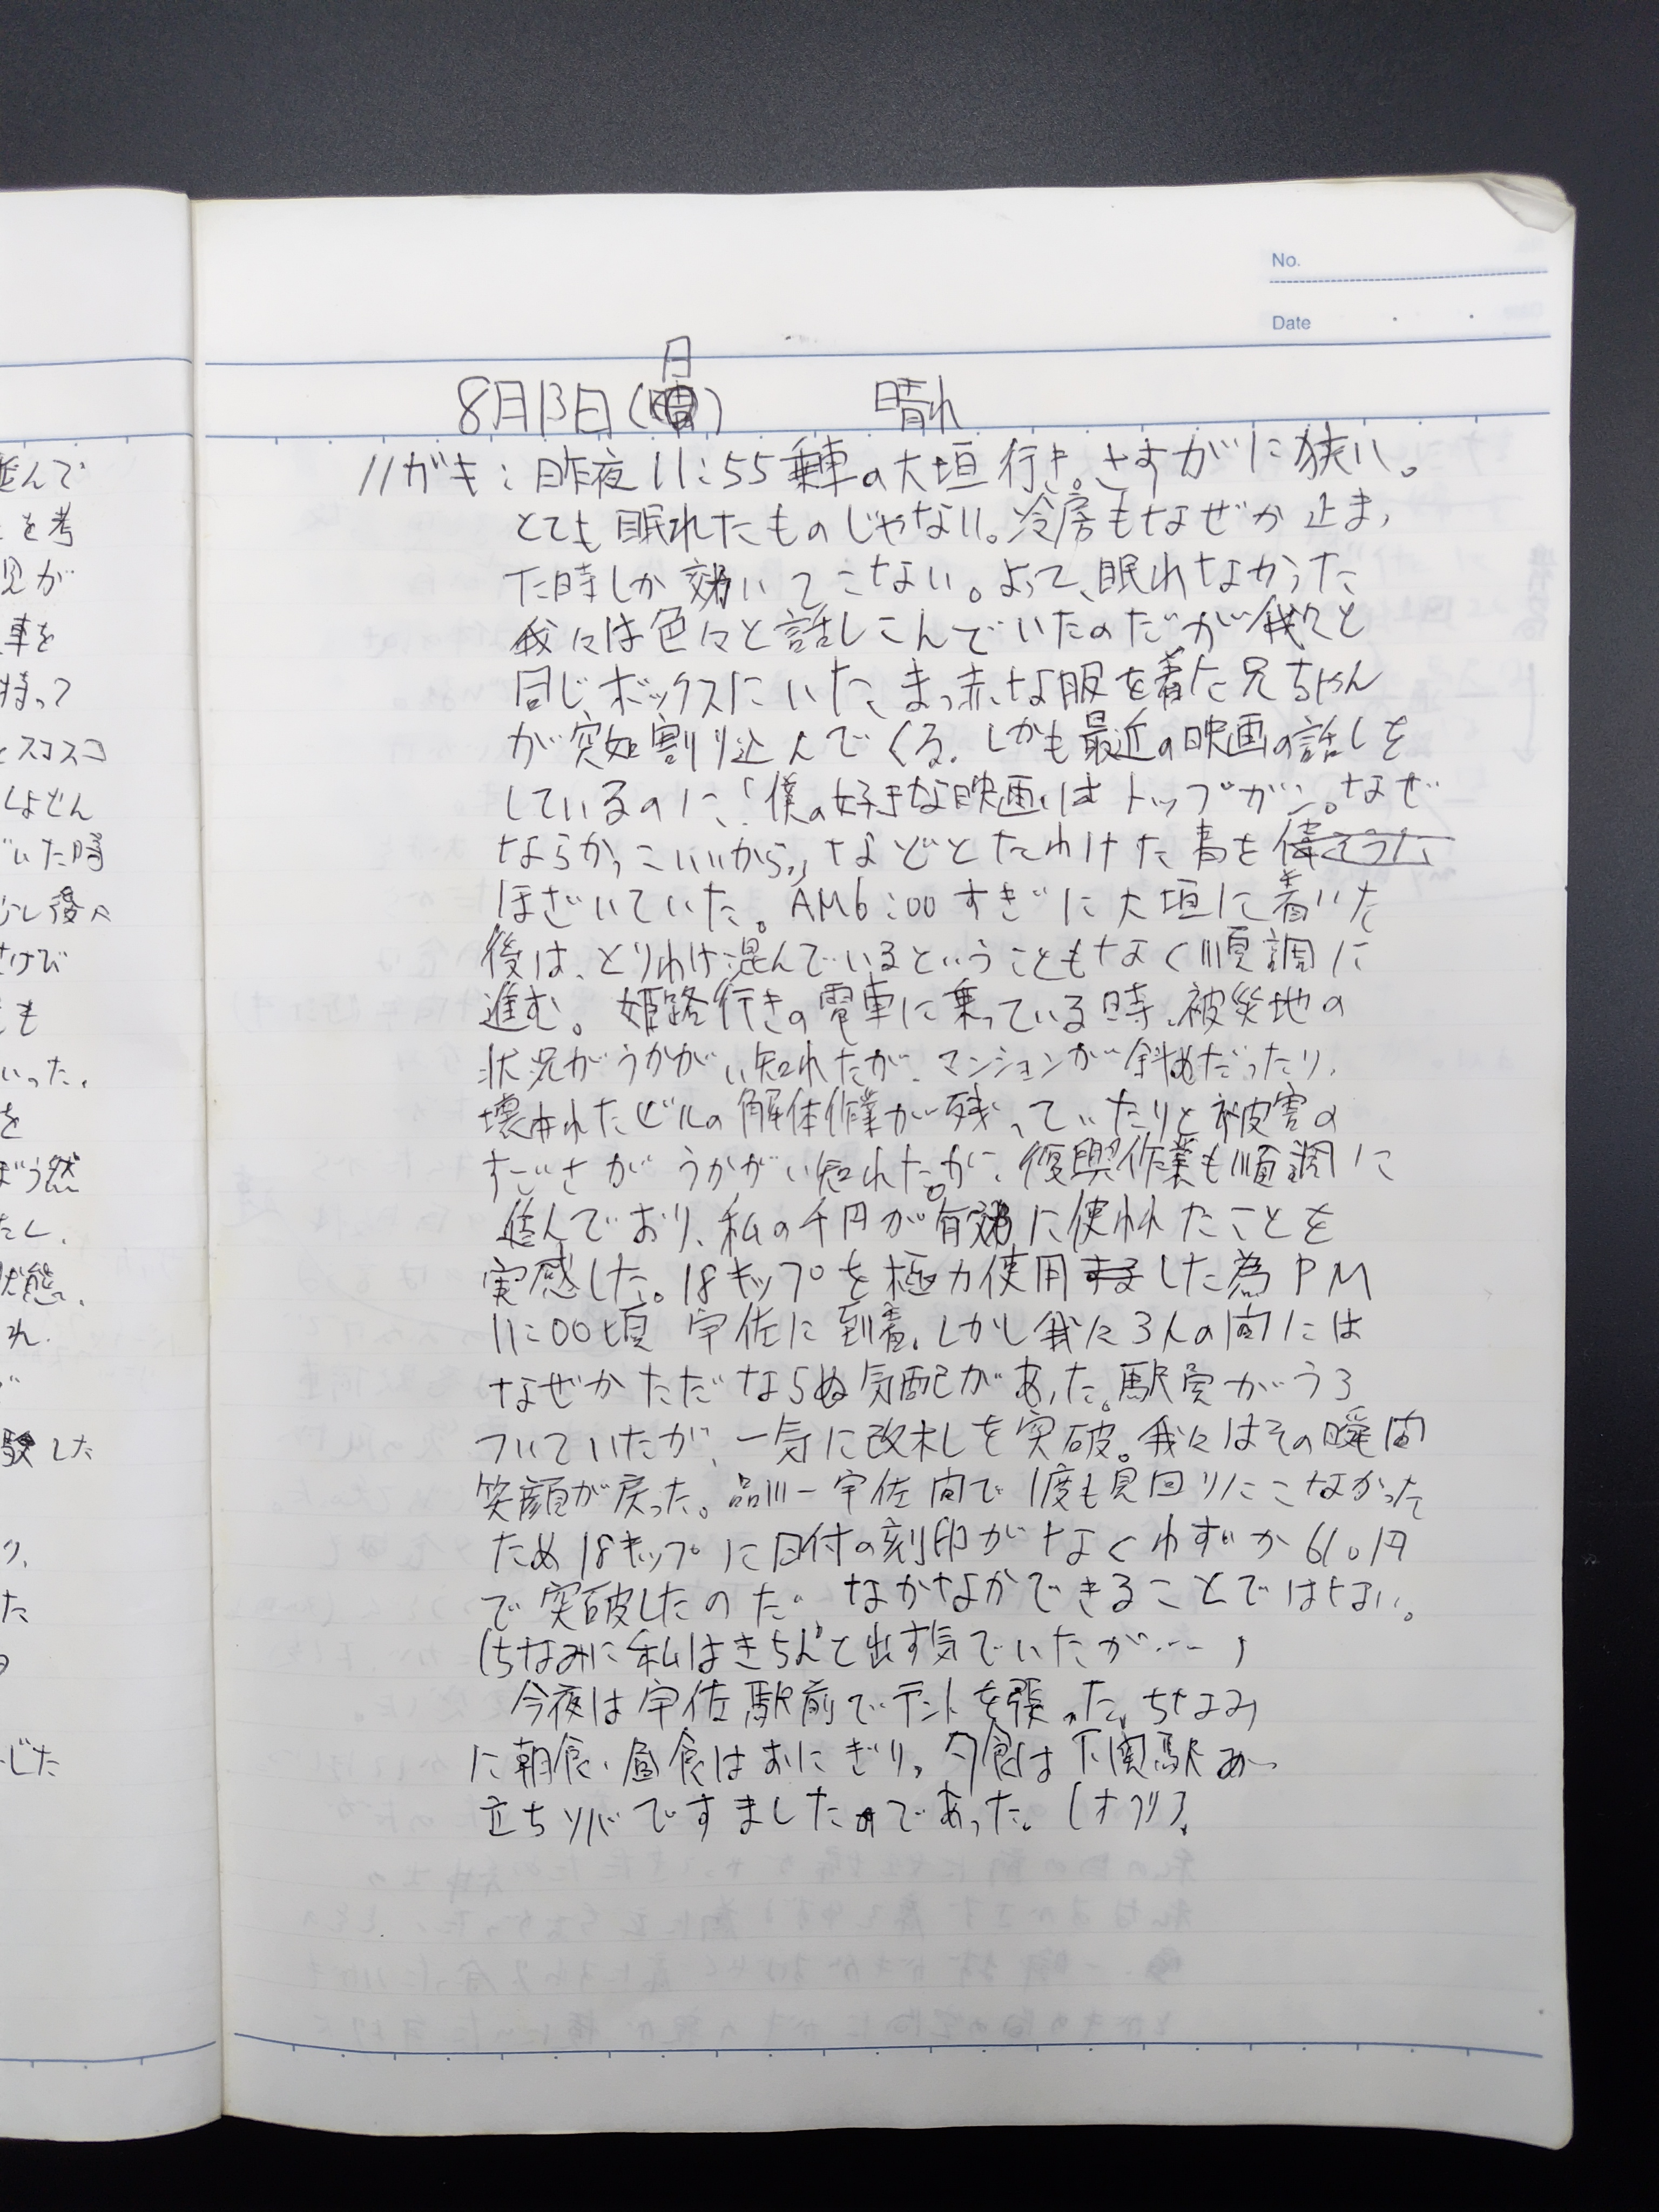 No.
Date
月
8月13日( ) 晴れ
いがき: 昨夜11:55乗車の大垣行き。さすがに狭い。
とても眠れたものじゃない。冷房もなぜか止まっ
た時しか効いてこない。よって、眠れなかった
我々は色々と話しこんでいたのだが我々と
同じボックスにいた、まっ赤な服を着た兄ちゃん
が突如割り込んでくる。しかも最近の映画の話しを
しているのに、「僕の好きな映画はトップガン。なぜ
ならかっこいいから。」などとたわけた事を偉そうに
ほざいていた。AM6:00すぎに大垣に着いた
後は、とりわけ混んでいるということもなく順調に
進む。姫路行きの電車に乗っている時、被災地の
状況がうかがい知れたが、マンションが斜めだったり、
壊われたビルの解体作業が残っていたりと被害の
すごさがうかがい知れた。が、復興作業も順調に
進んでおり、私の千円が有効に使われたことを
実感した。18キップを極力使用した為PM
11:00頃 宇佐に到着。しかし我々3人の間には
なぜかただならぬ気配があった。駅員がうろ
ついていたが、一気に改札を突破。我々はその瞬間
笑顔が戻った。品川ー宇佐間で1度も見回りにこなかった
ため18キップに日付の刻印がなくわずか610円
で突破したのだ。なかなかできることではない。
(ちなみに私はきちんと出す気でいたが……)
今夜は宇佐駅前でテントを張った。ちなみ
に朝食・昼食はおにぎり。夕食は下関駅の
立ちソバですましたのであった。(オワリ)
並んで
を考
児が
車を
持って
とスコスコ
しょせん
いた時
少し後へ
さけび
も
いった。
を
ぼう然
たし、
状態。
れ。
した
り、
た
じた